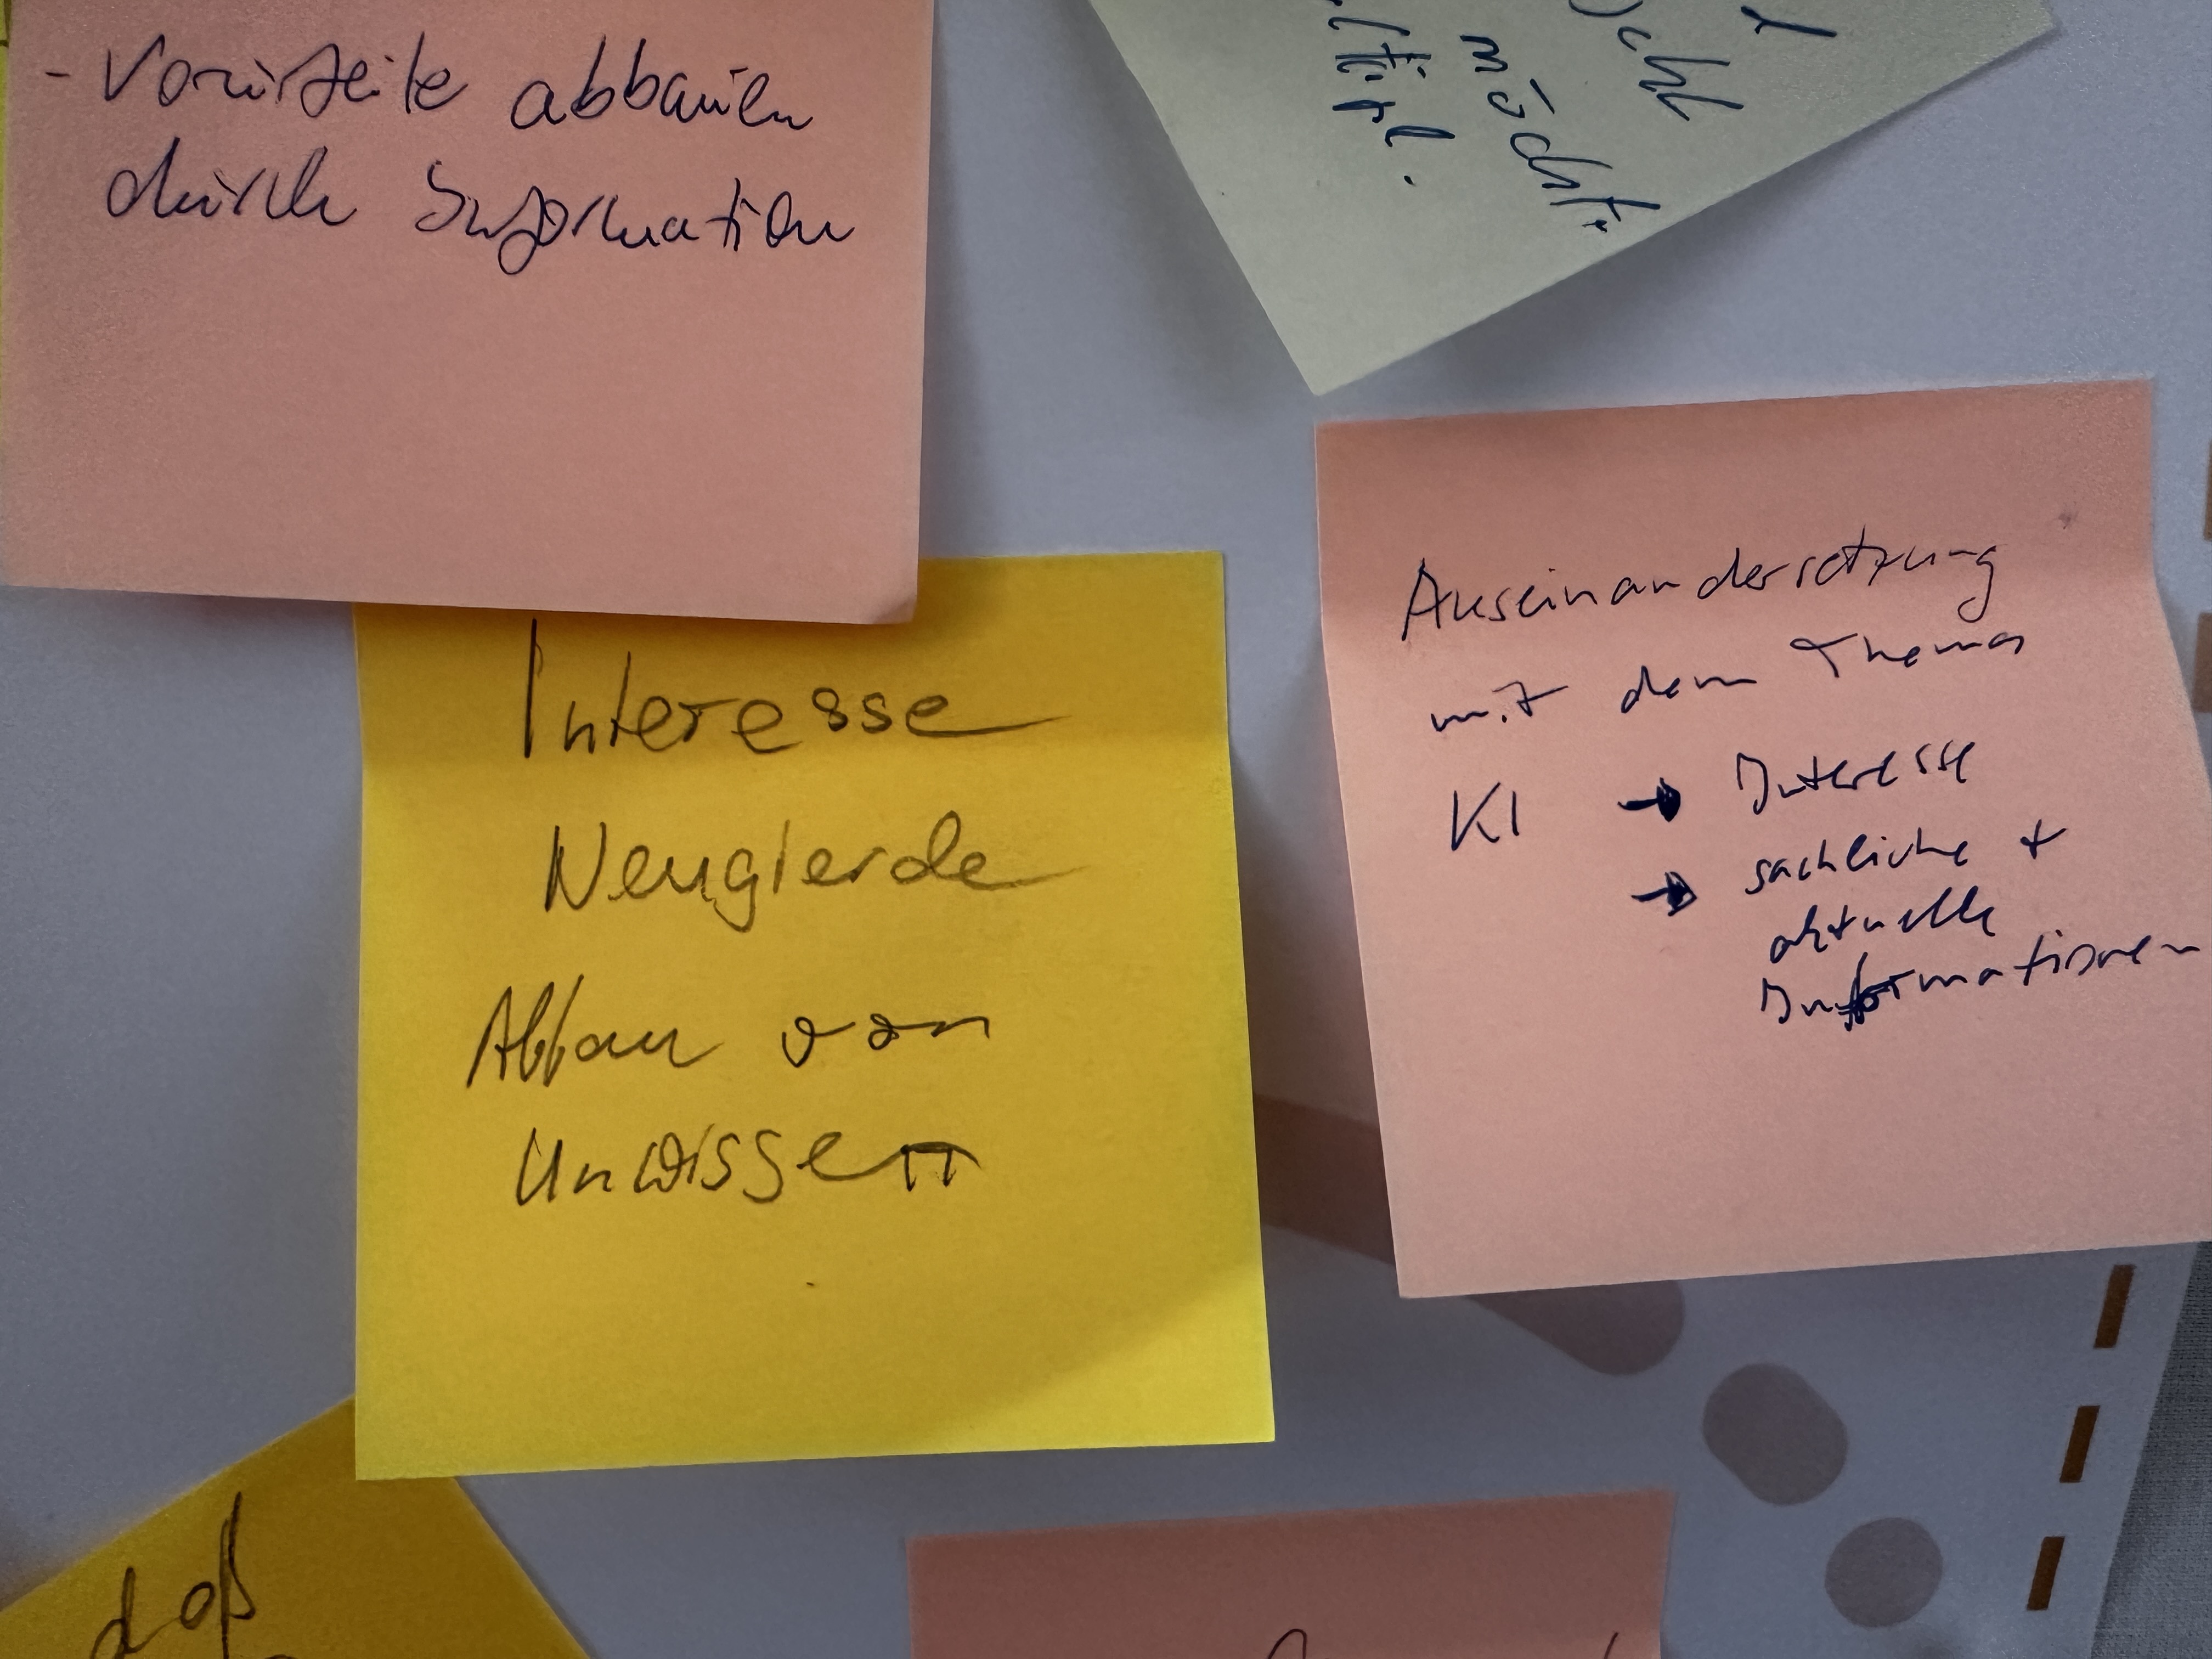 - Vorurteile abbauen
durch Information
möchte
Interesse
Neugierde
Abbau von
Unwissen
Auseinandersetzung
mit dem Thema
KI → Interesse
→ sachliche +
aktuelle
Informationen
daß